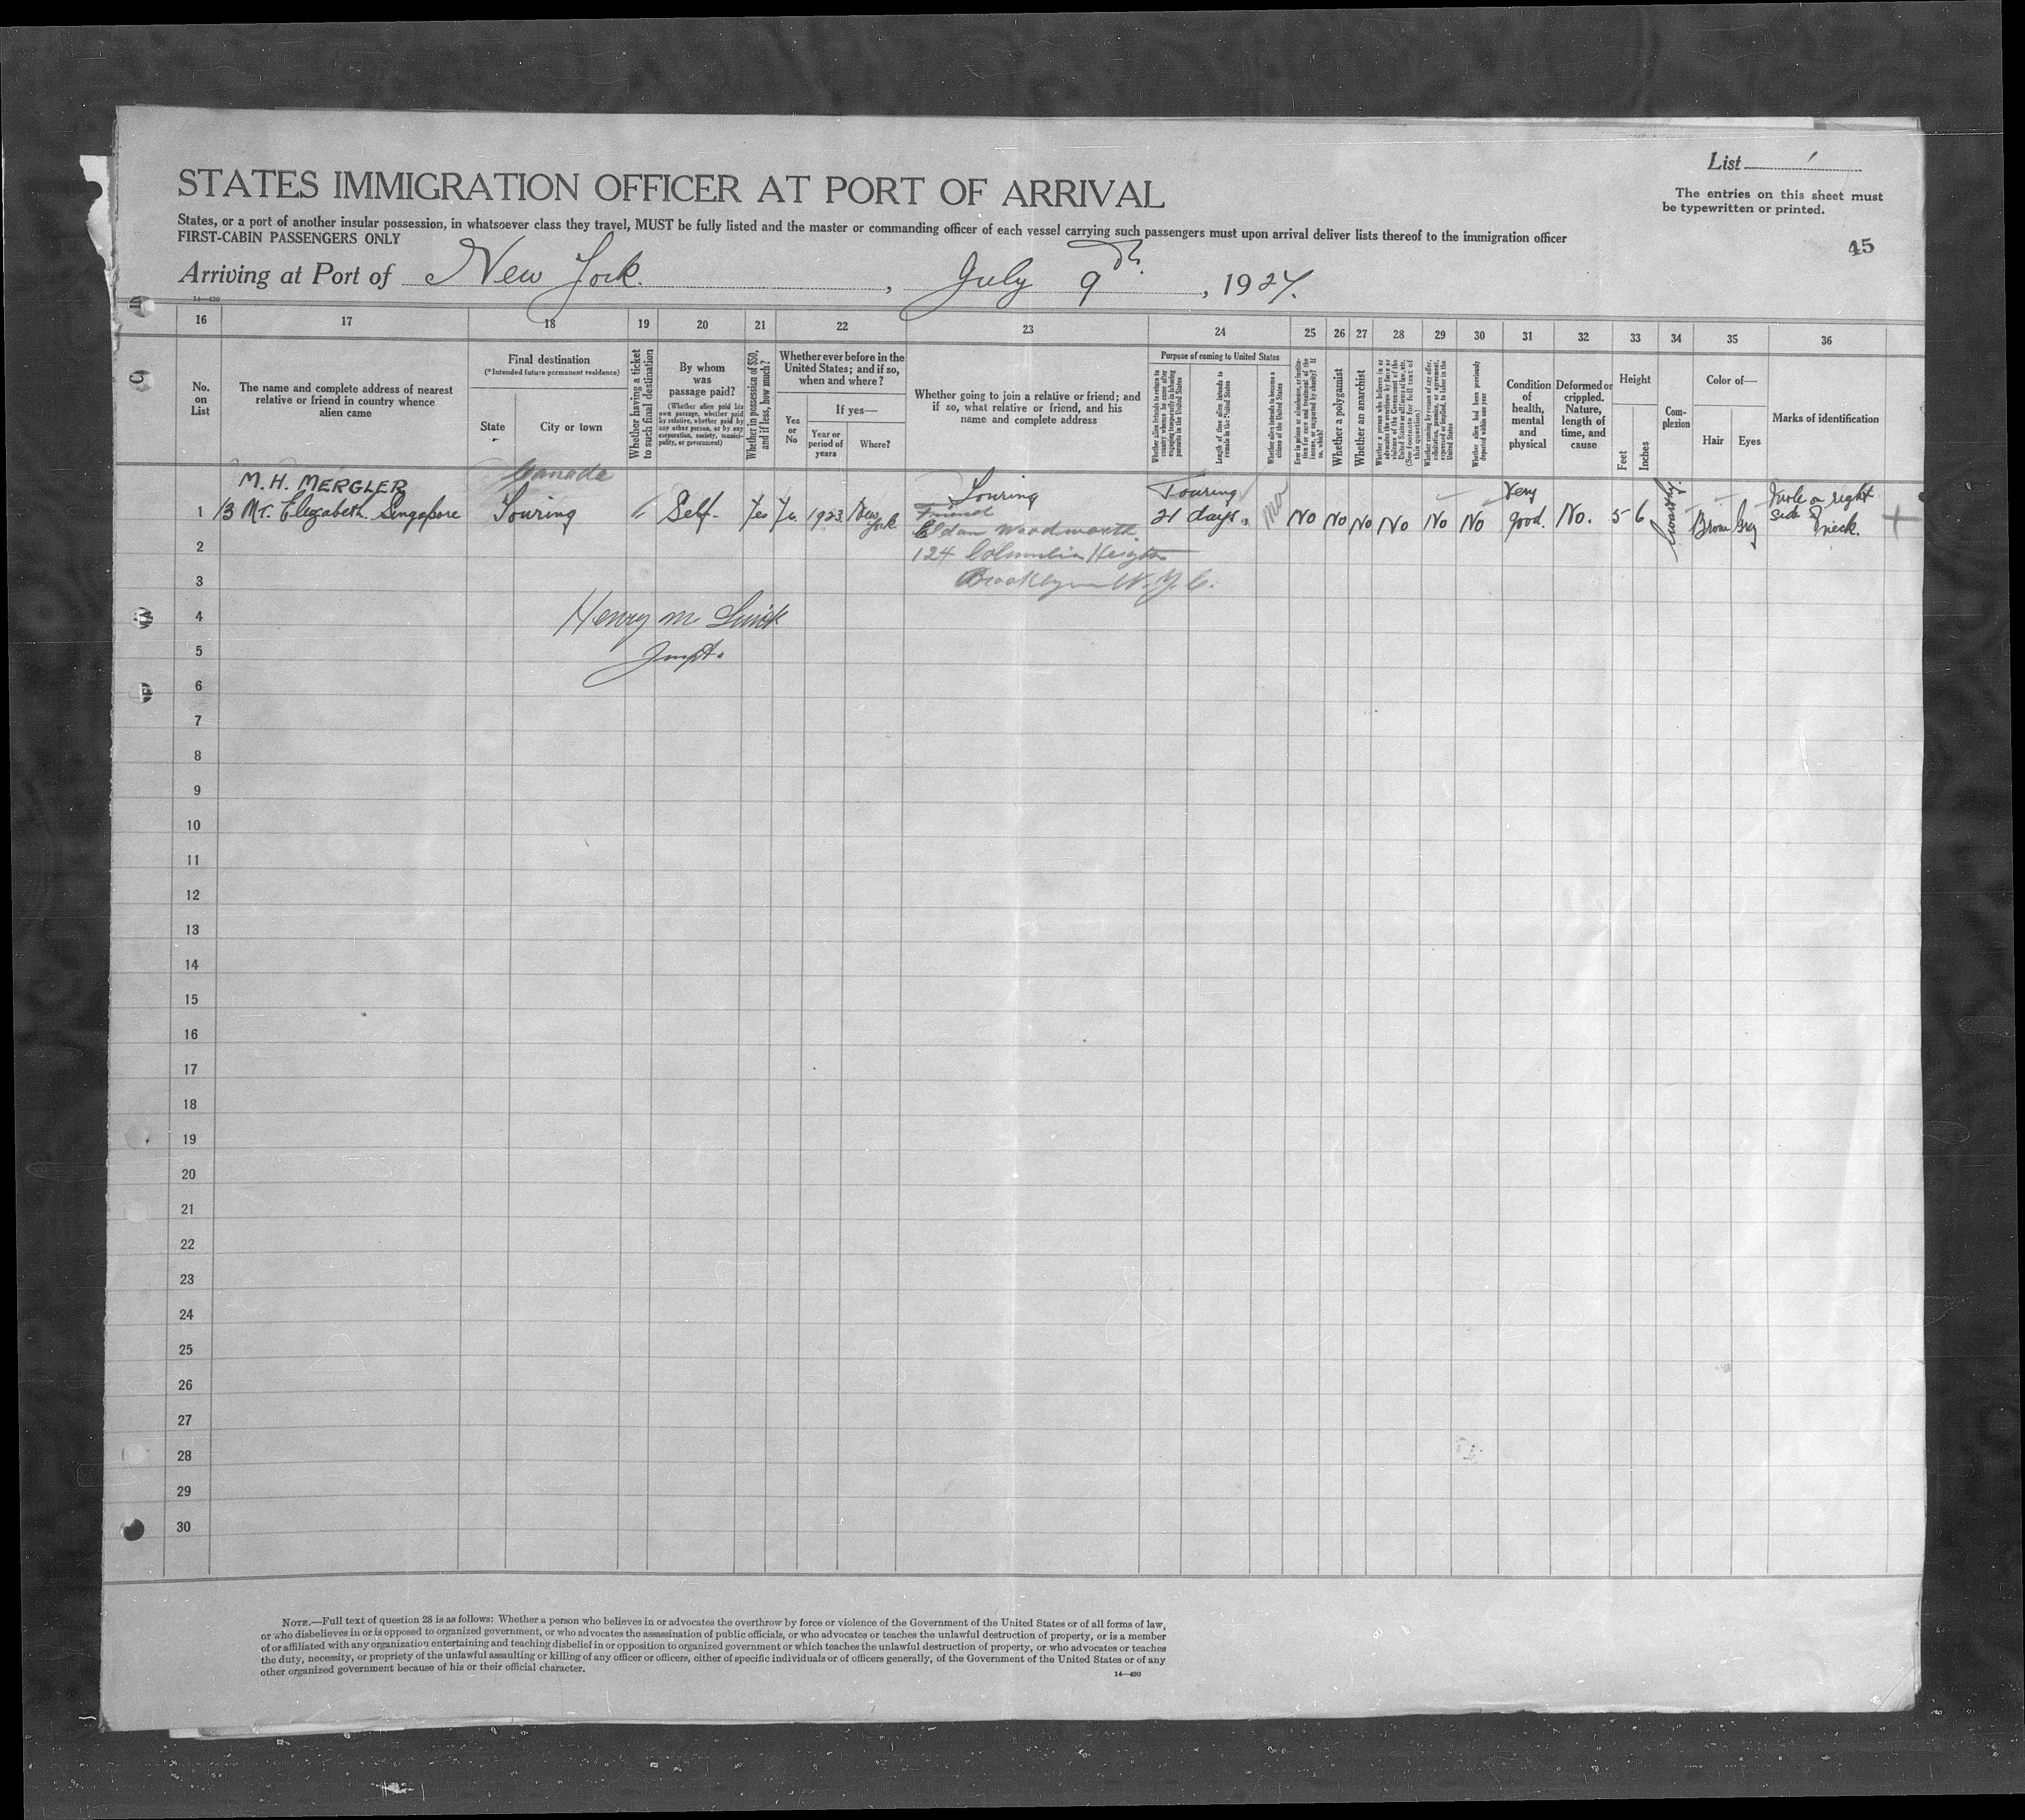 List 1
The entries on this sheet must
be typewritten or printed.
45
STATES IMMIGRATION OFFICER AT PORT OF ARRIVAL
States, or a port of another insular possession, in whatsoever class they travel, MUST be fully listed and the master or commanding officer of each vessel carrying such passengers must upon arrival deliver lists thereof to the immigration officer
FIRST-CABIN PASSENGERS ONLY
Arriving at Port of New York. , July 9th , 1927.
14—430
16 17 18 19 20 21 22 23 24 25 26 27 28 29 30 31 32 33 34 35 36
No. on List
The name and complete address of nearest relative or friend in country whence alien came
Final destination
(*Intended future permanent residence)
State
City or town
Whether having a ticket to such final destination
By whom was passage paid?
(Whether alien paid his own passage, whether paid by relative, whether paid by any other person, or by any corporation, society, municipality, or government)
Whether in possession of $50, and if less, how much?
Whether ever before in the United States; and if so, when and where?
Yes or No
If yes—
Year or period of years
Where?
Whether going to join a relative or friend; and if so, what relative or friend, and his name and complete address
Purpose of coming to United States
Whether alien intends to return to country whence he came after engaging temporarily in laboring pursuits in the United States
Length of time alien intends to remain in the United States
Whether alien intends to become a citizen of the United States
Ever in prison or almshouse, or institution for care and treatment of the insane, or supported by charity? If so, which?
Whether a polygamist
Whether an anarchist
Whether a person who believes in or advocates the overthrow by force or violence of the Government of the United States or all forms of law, etc. (See footnote for full text of this question.)
Whether coming by reason of any offer, solicitation, promise, or agreement, expressed or implied, to labor in the United States
Whether alien had been previously deported within one year
Condition of health, mental and physical
Deformed or crippled. Nature, length of time, and cause
Height
Feet
Inches
Complexion
Color of—
Hair
Eyes
Marks of identification
M. H. MERGLER Canada Touring Touring Very Mole on right
1 13 Mt. Elizabeth. Singapore Touring Self. Yes Yes 1923 New York Friend 21 days. No No No No No No No good. No. 5 6 Swarthy. Brown Grey side of neck.
2 Eldon Woodworth
124 Columbia Heights
3 Brooklyn N.Y.C.
4 Henry M.
5
6
7
8
9
10
11
12
13
14
15
16
17
18
19
20
21
22
23
24
25
26
27
28
29
30
NOTE.—Full text of question 28 is as follows: Whether a person who believes in or advocates the overthrow by force or violence of the Government of the United States or of all forms of law,
or who disbelieves in or is opposed to organized government, or who advocates the assassination of public officials, or who advocates or teaches the unlawful destruction of property, or is a member
of or affiliated with any organization entertaining and teaching disbelief in or opposition to organized government or which teaches the unlawful destruction of property, or who advocates or teaches
the duty, necessity, or propriety of the unlawful assaulting or killing of any officer or officers, either of specific individuals or of officers generally, of the Government of the United States or of any
other organized government because of his or their official character.
14—430